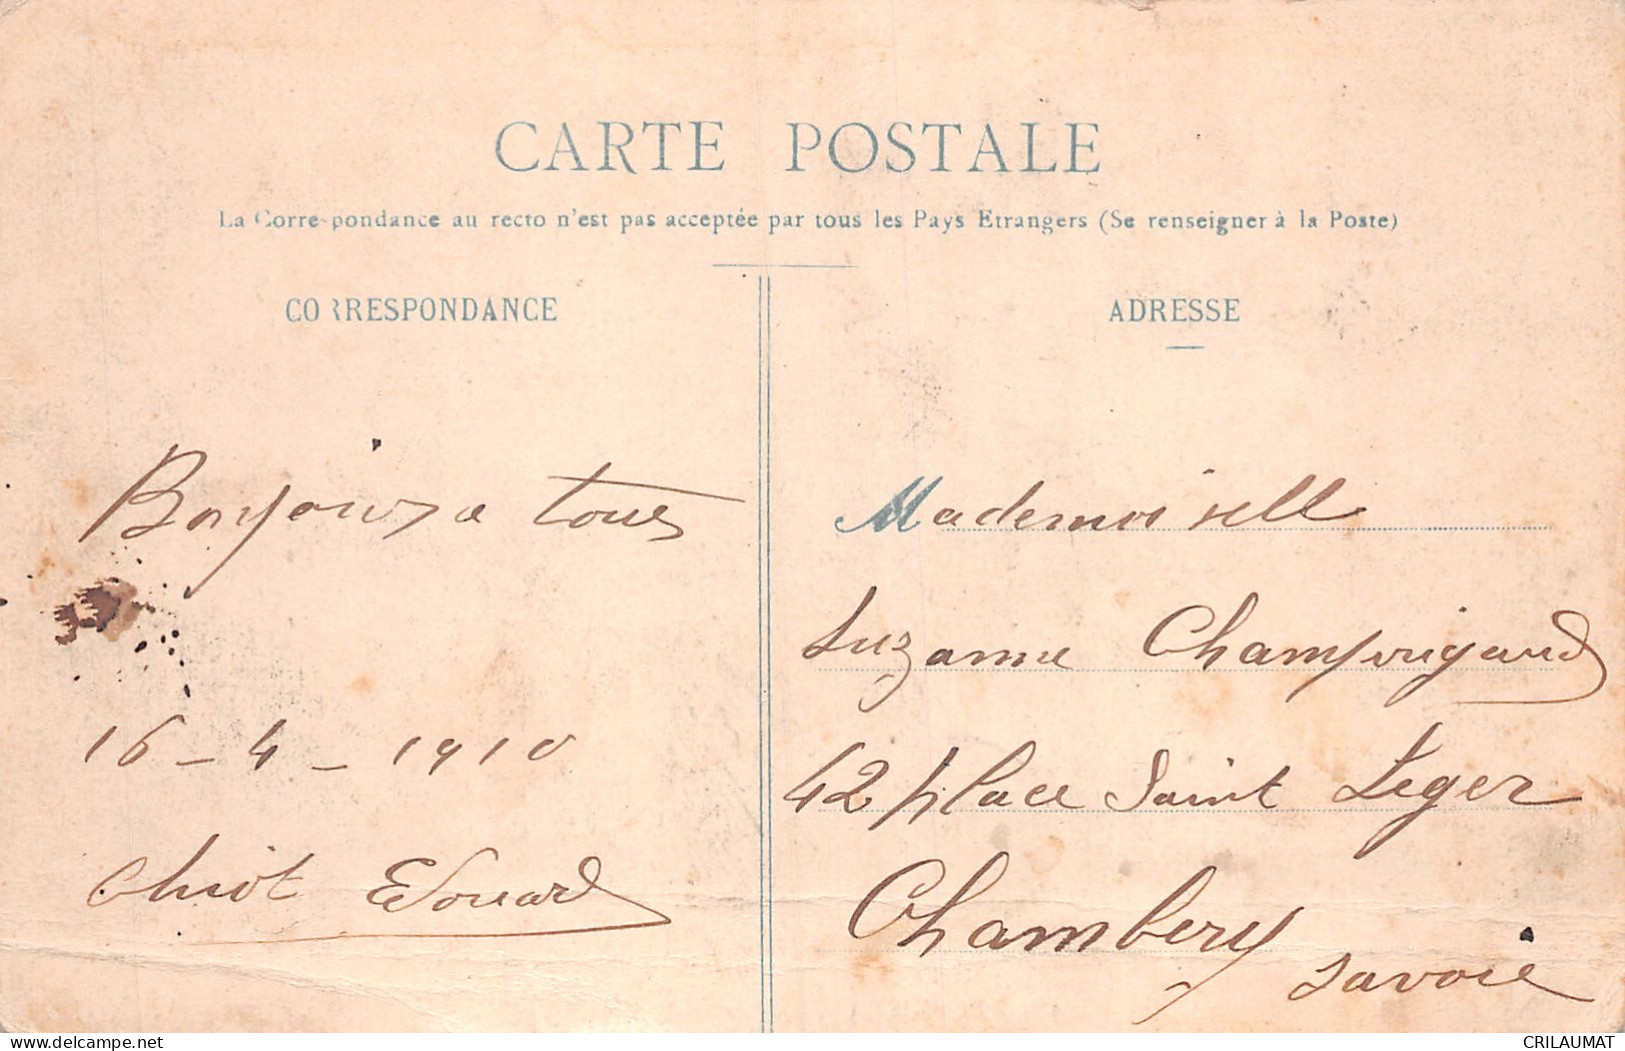 CARTE POSTALE
La Correspondance au recto n'est pas acceptée par tous les Pays Etrangers (Se renseigner à la Poste)
CORRESPONDANCE
Bonjour a tous
16 - 4 - 1910
Edouard
ADRESSE
Mademoiselle
Suzanne
42 place Saint Leger
Chambery
Savoie
delcampe.net
CRILAUMAT